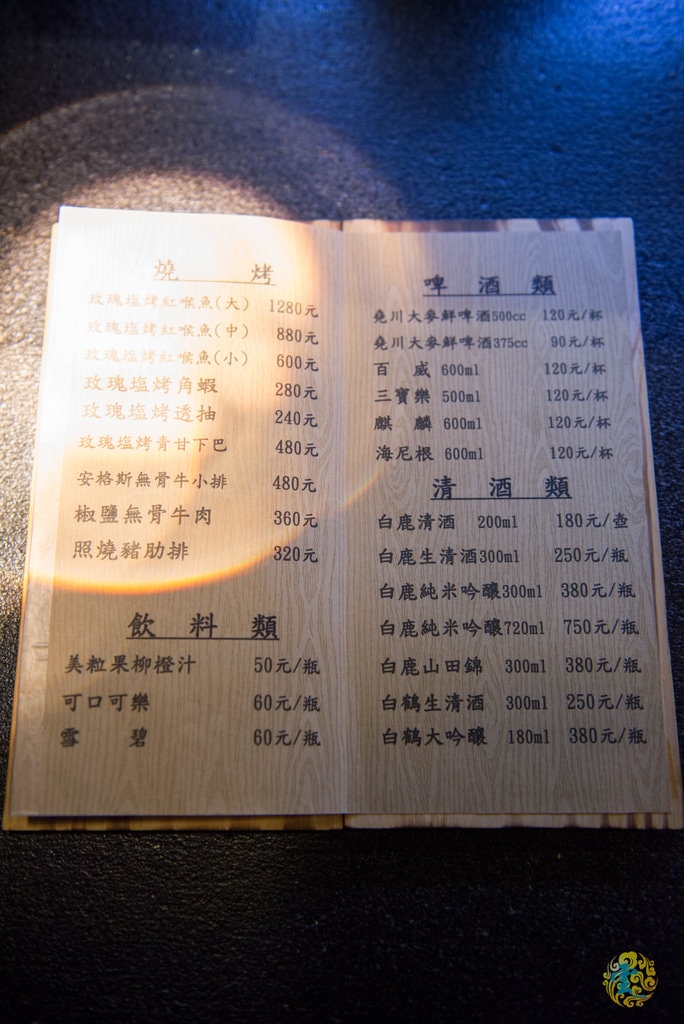 燒 烤
玫瑰塩烤紅喉魚(大) 1280元
玫瑰塩烤紅喉魚(中) 880元
玫瑰塩烤紅喉魚(小) 600元
玫瑰塩烤角蝦 280元
玫瑰塩烤透抽 240元
玫瑰塩烤青甘下巴 480元
安格斯無骨牛小排 480元
椒鹽無骨牛肉 360元
照燒豬肋排 320元
飲 料 類
美粒果柳橙汁 50元/瓶
可口可樂 60元/瓶
雪 碧 60元/瓶
啤 酒 類
堯川大麥鮮啤酒500cc 120元/杯
堯川大麥鮮啤酒375cc 90元/杯
百 威 600ml 120元/杯
三寶樂 500ml 120元/杯
麒 麟 600ml 120元/杯
海尼根 600ml 120元/杯
清 酒 類
白鹿清酒 200ml 180元/壺
白鹿生清酒300ml 250元/瓶
白鹿純米吟釀300ml 380元/瓶
白鹿純米吟釀720ml 750元/瓶
白鹿山田錦 300ml 380元/瓶
白鶴生清酒 300ml 250元/瓶
白鶴大吟釀 180ml 380元/瓶